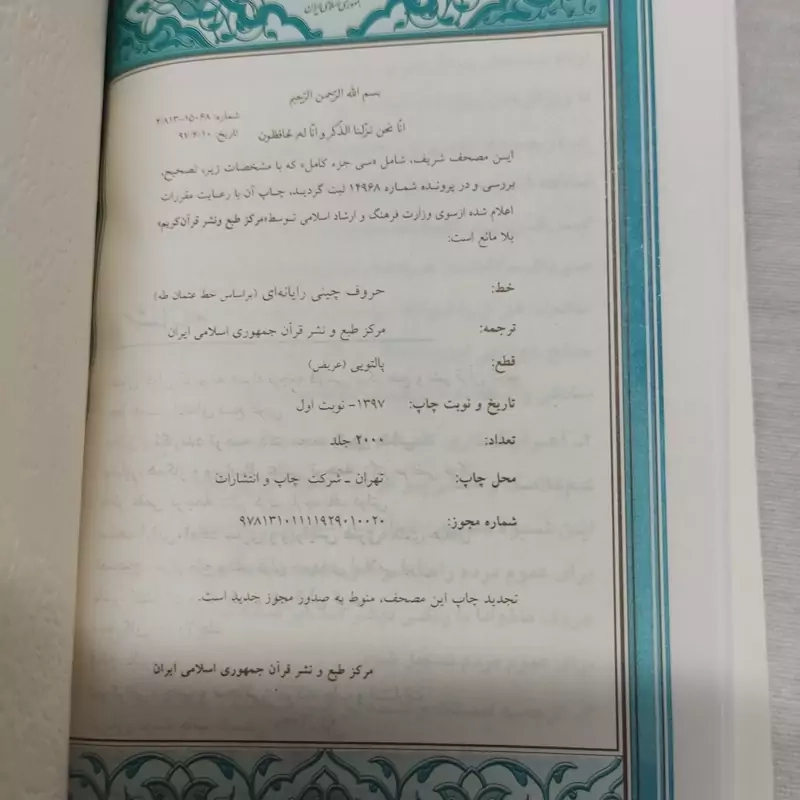 جمهوری اسلامی ایران
بسم الله الرّحمن الرّحیم
شماره:
تاریخ: ۹۷/۶/۱۰
انّا نحن نزّلنا الذّکر و انّا له لحافظون
ایسن مصحف شریف، شامل «سی جزء کامل» که با مشخصات زیر، تصحیح،
بررسی و در پرونده شماره ۱۴۹۶۸ ثبت گردید، چاپ آن با رعایت مقررات
اعلام شده ازسوی وزارت فرهنگ و ارشاد اسلامی توسط«مرکز طبع ونشر قرآن‌کریم»
بلا مانع است:
خط: حروف چینی رایانه‌ای (براساس خط عثمان طه)
ترجمه: مرکز طبع و نشر قرآن جمهوری اسلامی ایران
قطع: پالتویی (عریض)
تاریخ و نوبت چاپ: ۱۳۹۷- نوبت اول
تعداد: ۲۰۰۰ جلد
محل چاپ: تهران ـ شرکت چاپ و انتشارات
شماره مجوز: ۹۷۸۱۳۱۰۱۱۱۱۹۲۹۰۱۰۰۲۰
تجدید چاپ این مصحف، منوط به صدور مجوز جدید است.
مرکز طبع و نشر قرآن جمهوری اسلامی ایران